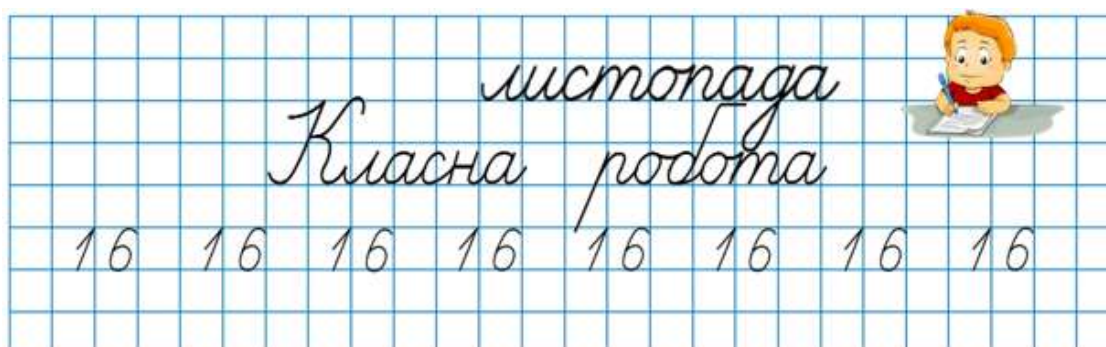 листопада
Класна робота
16 16 16 16 16 16 16 16